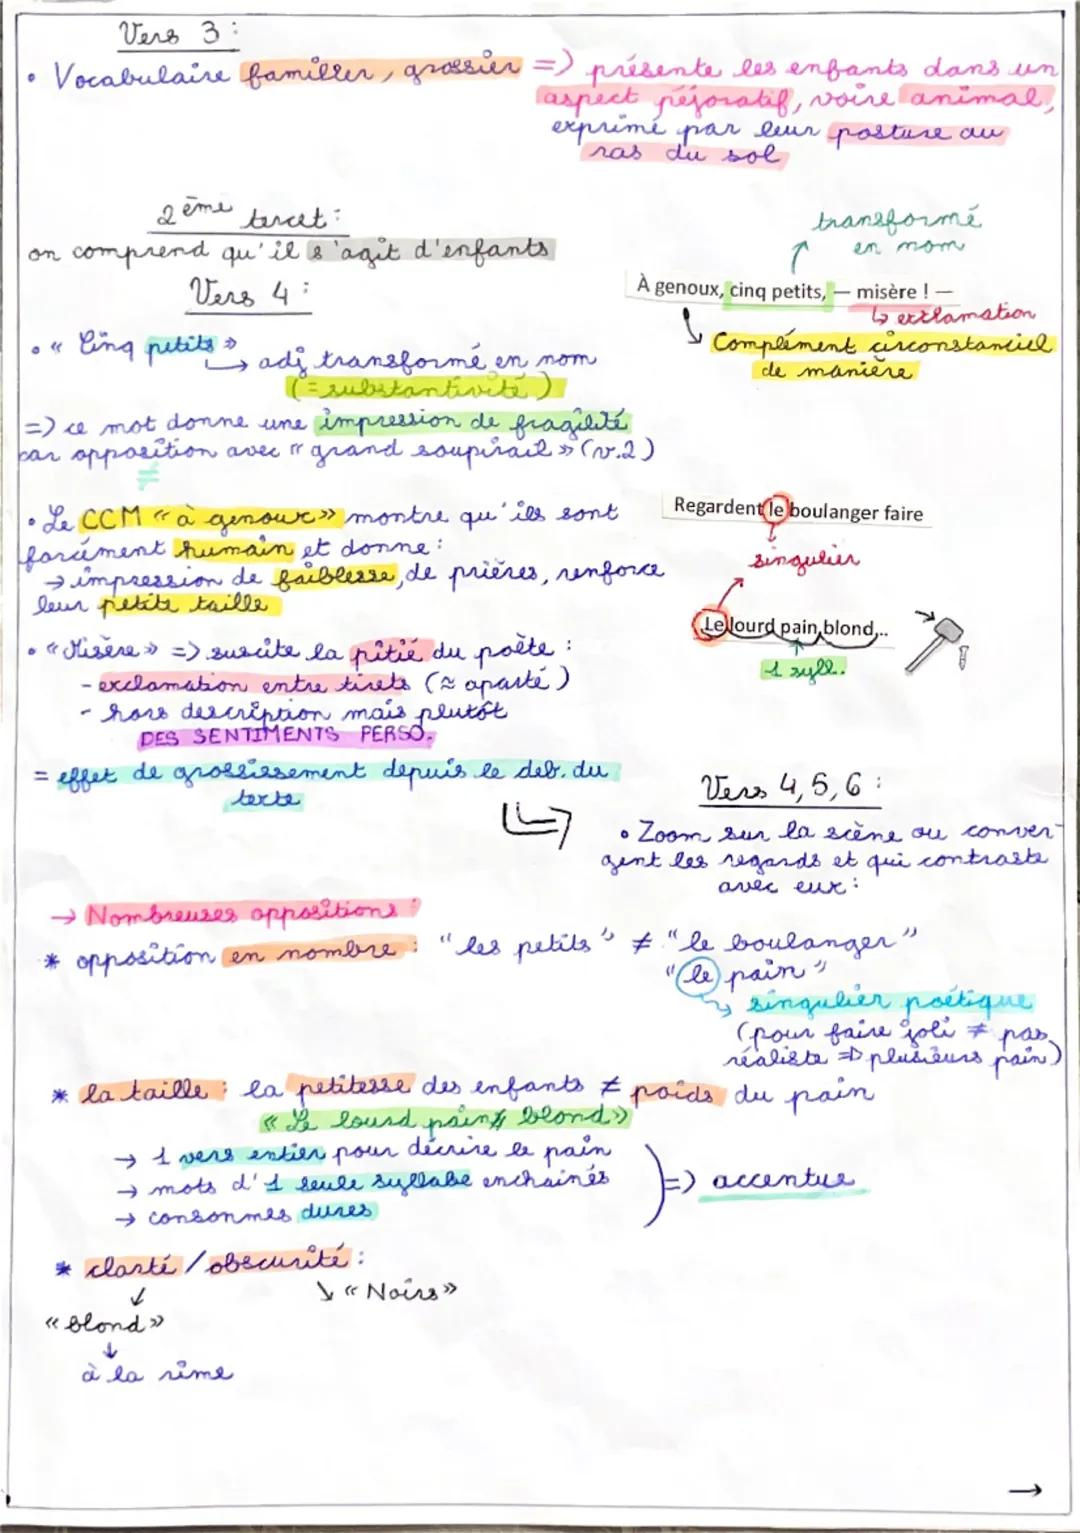 Vers 3 :
• Vocabulaire familier, grossier => présente les enfants dans un
aspect péjoratif, voire animal,
exprimé par leur posture au
ras du sol
2ème tercet :
on comprend qu'il s'agit d'enfants
Vers 4 :
• « Cinq petits »
↳ adj transformé en nom
(= substantivité)
=> ce mot donne une impression de fragilité
par opposition avec « grand soupirail » (v.2)
≠
• Le CCM « à genoux » montre qu'ils sont
forcément humain et donne :
→ impression de faiblesse, de prières, renforce
leur petite taille
• « Misère » => suscite la pitié du poète :
- exclamation entre tirets (≈ aparté)
- hors description mais plutôt
DES SENTIMENTS PERSO.
= effet de grossissement depuis le deb. du
texte
transformé
en nom
À genoux, cinq petits, — misère ! —
↳ exclamation
Complément circonstanciel
de manière
Regardent le boulanger faire
singulier
Le lourd pain blond...
1 syll.
Vers 4, 5, 6 :
• Zoom sur la scène ou conver-
gent les regards et qui contraste
avec eux :
→ Nombreuses oppositions :
* opposition en nombre : "les petits" ≠ "le boulanger"
"le pain"
singulier poétique
(pour faire joli ≠ pas
réaliste => plusieurs pain)
* la taille : la petitesse des enfants ≠ poids du pain
« Le lourd pain blond »
→ 1 vers entier pour décrire le pain
→ mots d'1 seule syllabe enchaînés
→ consonnes dures
=> accentue
* clarté / obscurité :
↓ ↘ « Noirs »
« blond »
↓
à la rime
→